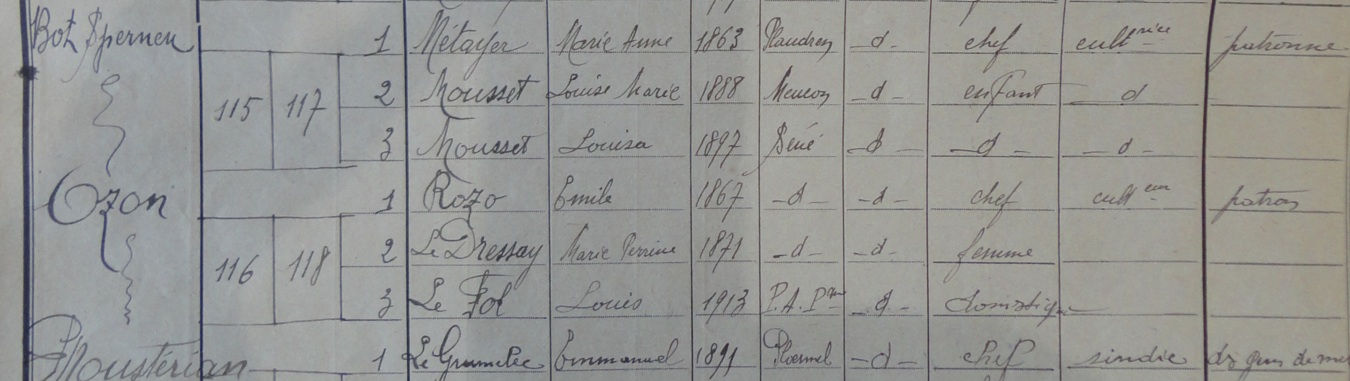 Bot Spernen 1 Métayer Marie Anne 1863 Plaudren -d- chef cultrice patronne
115 117 2 Mousset Louise Marie 1888 Meucon -d- enfant d
3 Mousset Louisa 1897 Séné -d- -d- -d-
Ozon 1 Rozo Emile 1867 -d- -d- chef culteur patron
116 118 2 Le Dressay Marie Perrine 1871 -d- -d- femme
3 Le Fol Louis 1913 -d- domestique
Moustérian 1 Le Grumelec Emmanuel 1891 Ploermel -d- chef sindic des gens de mer